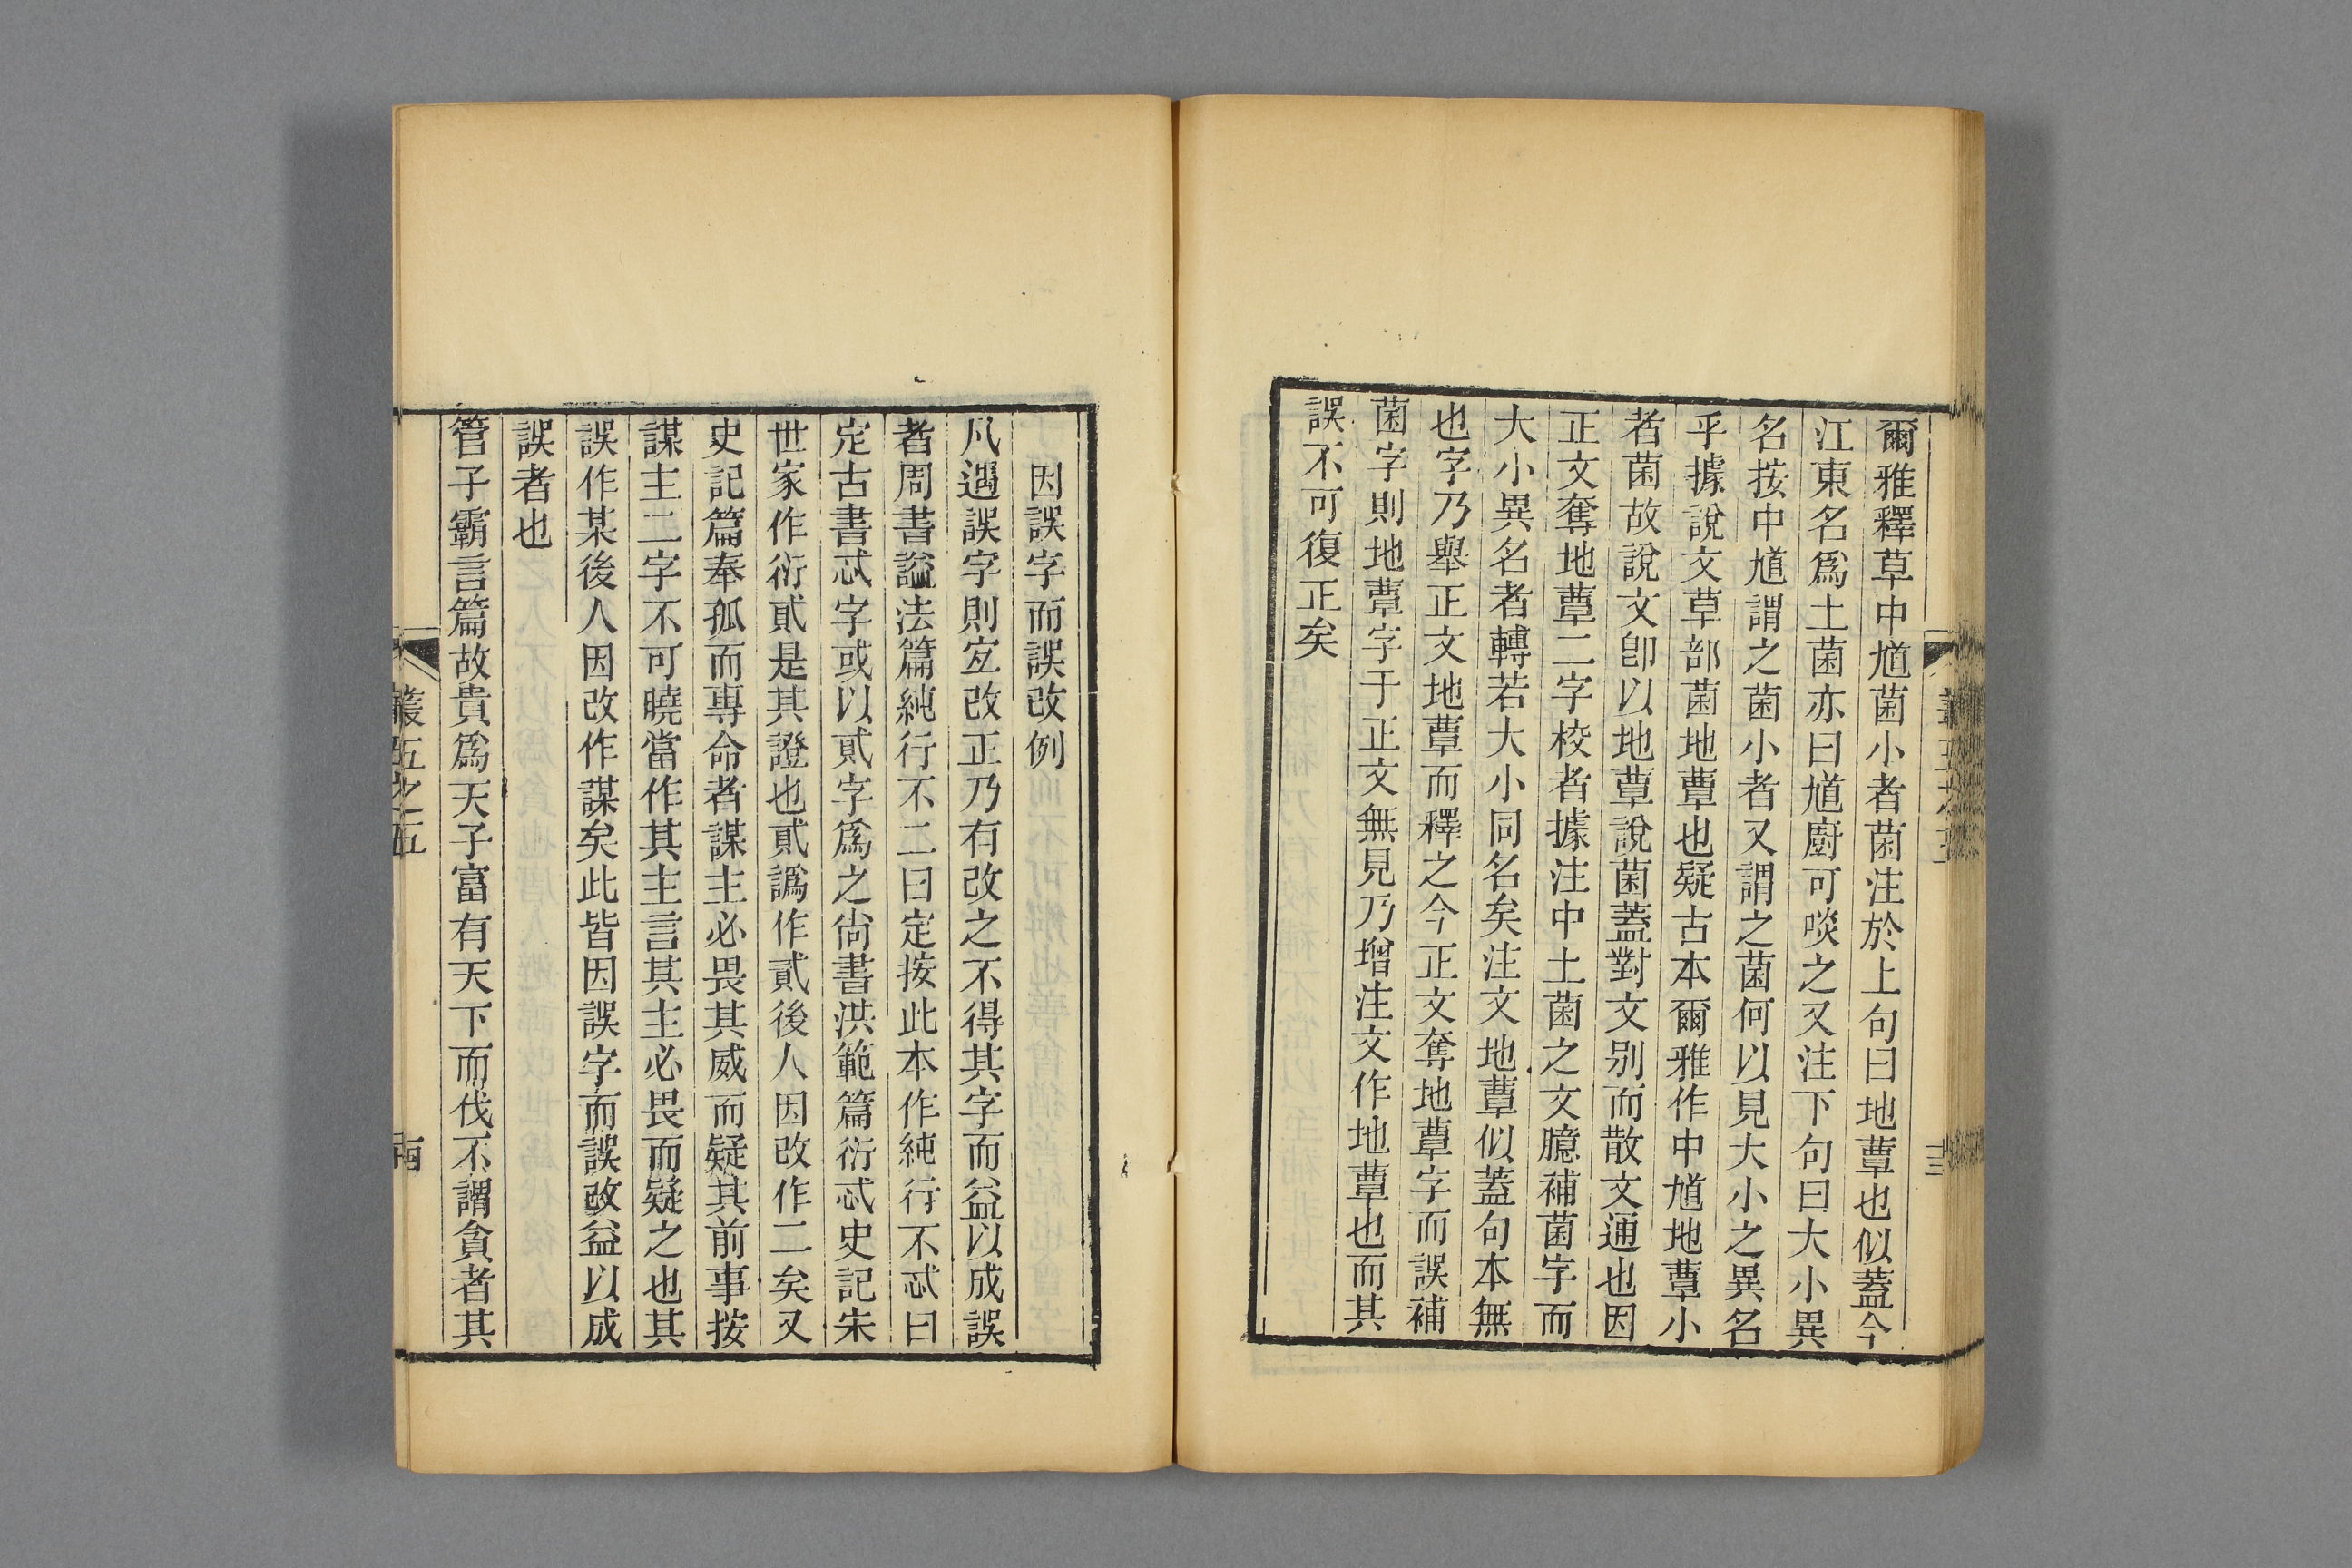 爾雅釋草中馗菌小者菌注於上句曰地蕈也似蓋今
江東名爲土菌亦曰馗廚可啖之又注下句曰大小異
名按中馗謂之菌小者又謂之菌何以見大小之異名
乎據說文草部菌地蕈也疑古本爾雅作中馗地蕈小
者菌故說文卽以地蕈說菌蓋對文别而散文通也因
正文奪地蕈二字校者據注中土菌之文臆補菌字而
大小異名者轉若大小同名矣注文地蕈似蓋句本無
也字乃舉正文地蕈而釋之今正文奪地蕈字而誤補
菌字則地蕈字于正文無見乃增注文作地蕈也而其
誤不可復正矣
因誤字而誤改例
凡遇誤字則宐改正乃有改之不得其字而益以成誤
者周書諡法篇純行不二曰定按此本作純行不忒曰
定古書忒字或以貳字爲之尙書洪範篇衍忒史記宋
世家作衍貳是其證也貳譌作貳後人因改作二矣又
史記篇奉孤而專命者謀主必畏其威而疑其前事按
謀主二字不可曉當作其主言其主必畏而疑之也其
誤作某後人因改作謀矣此皆因誤字而誤改益以成
誤者也
管子霸言篇故貴爲天子富有天下而伐不謂貪者其
叢五之五